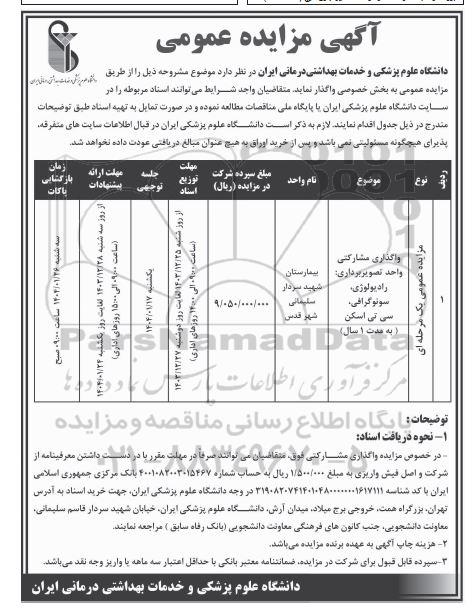 آگهی مزایده عمومی
دانشگاه علوم پزشکی و خدمات بهداشتی درمانی ایران
دانشگاه علوم پزشکی و خدمات بهداشتی‌درمانی ایران در نظر دارد موضوع مشروحه ذیل را از طریق
مزایده عمومی به بخش خصوصی واگذار نماید. متقاضیان واجد شرایط می‌توانند اسناد مربوطه را در
سایت دانشگاه علوم پزشکی ایران یا پایگاه ملی مناقصات مطالعه نموده و در صورت تمایل به تهیه اسناد طبق توضیحات
مندرج در ذیل جدول اقدام نمایند. لازم به ذکر است دانشگاه علوم پزشکی ایران در قبال اطلاعات سایت های متفرقه،
پذیرای هیچگونه مسئولیتی نمی باشد و پس از خرید اوراق به هیچ عنوان مبالغ دریافتی عودت داده نخواهد شد.
ردیف
نوع
موضوع
نام واحد
مبلغ سپرده شرکت در مزایده (ریال)
مهلت توزیع اسناد
جلسه توجیهی
مهلت ارائه پیشنهادات
زمان بازگشایی پاکات
۱
مزایده عمومی یک مرحله ای
واگذاری مشارکتی
واحد تصویربرداری:
رادیولوژی،
سونوگرافی،
سی تی اسکن
( به مدت ۱ سال)
بیمارستان
شهید سردار
سلیمانی
شهر قدس
۹/۰۵۰/۰۰۰/۰۰۰
از روز شنبه ۱۴۰۳/۱۲/۲۵ لغایت روز دوشنبه ۱۴۰۳/۱۲/۲۷
(ساعت ۰۹:۰۰ الی ۱۴:۰۰ روزهای اداری)
یکشنبه ۱۴۰۴/۰۱/۱۷
از روز سه شنبه ۱۴۰۳/۱۲/۲۸ لغایت روز یکشنبه ۱۴۰۴/۰۱/۲۴
(ساعت ۰۹:۰۰ الی ۱۵:۰۰ روزهای اداری)
سه شنبه ۱۴۰۴/۰۱/۲۶ ساعت ۰۹:۰۰ صبح
ParsNamadData
مرکز فرآوری اطلاعات پارس نماد داده ها
پایگاه اطلاع رسانی مناقصه و مزایده
۰۲۱-۸۸۳۴۹۶۷۰-۵
توضیحات :
۱- نحوه دریافت اسناد:
- در خصوص مزایده واگذاری مشارکتی فوق، متقاضیان می توانند صرفاً در مهلت مقرر با در دست داشتن معرفینامه از
شرکت و اصل فیش واریزی به مبلغ ۱/۵۰۰/۰۰۰ ریال به حساب شماره ۴۰۰۱۰۸۲۰۰۳۰۱۵۴۶۷ بانک مرکزی جمهوری اسلامی
ایران با کد شناسه ۳۱۹۰۸۲۰۷۴۱۴۰۱۰۴۸۰۰۰۰۰۰۰۱۶۱۷۱۱۱ در وجه دانشگاه علوم پزشکی ایران، جهت خرید اسناد به آدرس
تهران، بزرگراه همت، خروجی برج میلاد، میدان آرش، دانشگاه علوم پزشکی ایران، خیابان شهید سردار قاسم سلیمانی،
معاونت دانشجویی، جنب کانون های فرهنگی معاونت دانشجویی (بانک رفاه سابق ) مراجعه نمایند.
۲- هزینه چاپ آگهی به عهده برنده مزایده می‌باشد.
۳-سپرده قابل قبول برای شرکت در مزایده، ضمانتنامه معتبر بانکی با حداقل اعتبار سه ماهه یا واریز وجه نقد می‌باشد.
دانشگاه علوم پزشکی و خدمات بهداشتی درمانی ایران